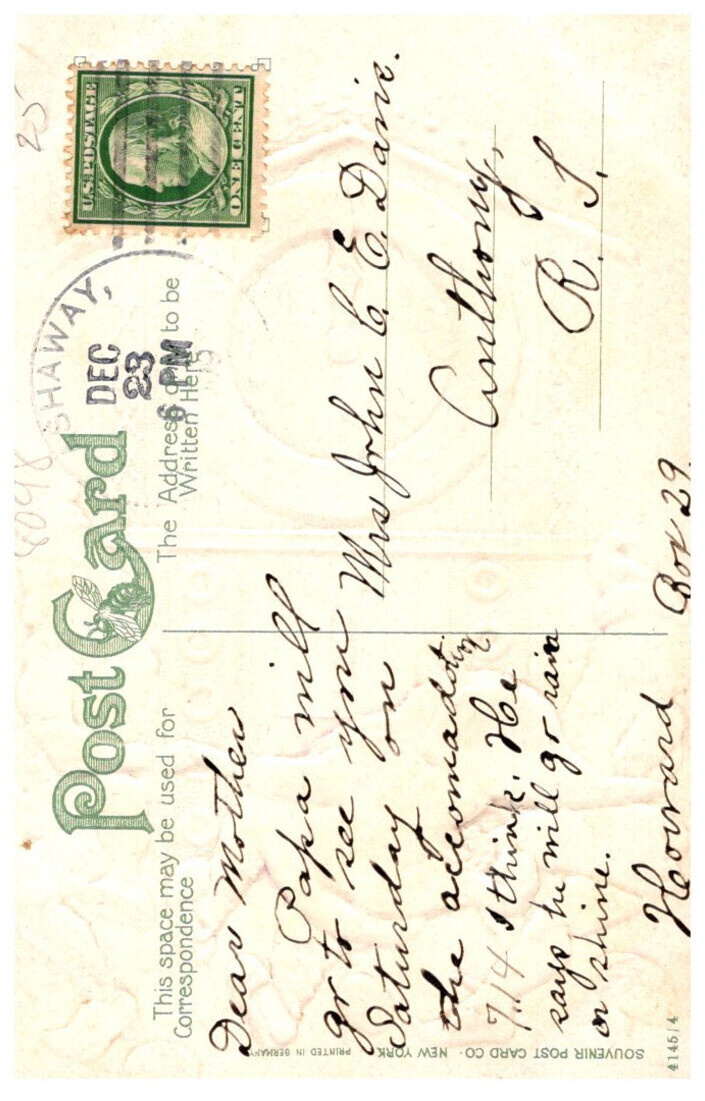 Post Card
This space may be used for
Correspondence
The Address only to be
Written Here
SHAWAY,
DEC
23
6 PM
U.S. POSTAGE
ONE CENT
25
8098
Dear Mother
Papa will
go to see you
Saturday on
the accomadation
7.14 I think. He
says he will go rain
or shine.
Howard
Mrs John C. E. Davis.
Anthony,
R. I.
Box 29.
SOUVENIR POST CARD CO. NEW YORK
PRINTED IN GERMANY
4145/4